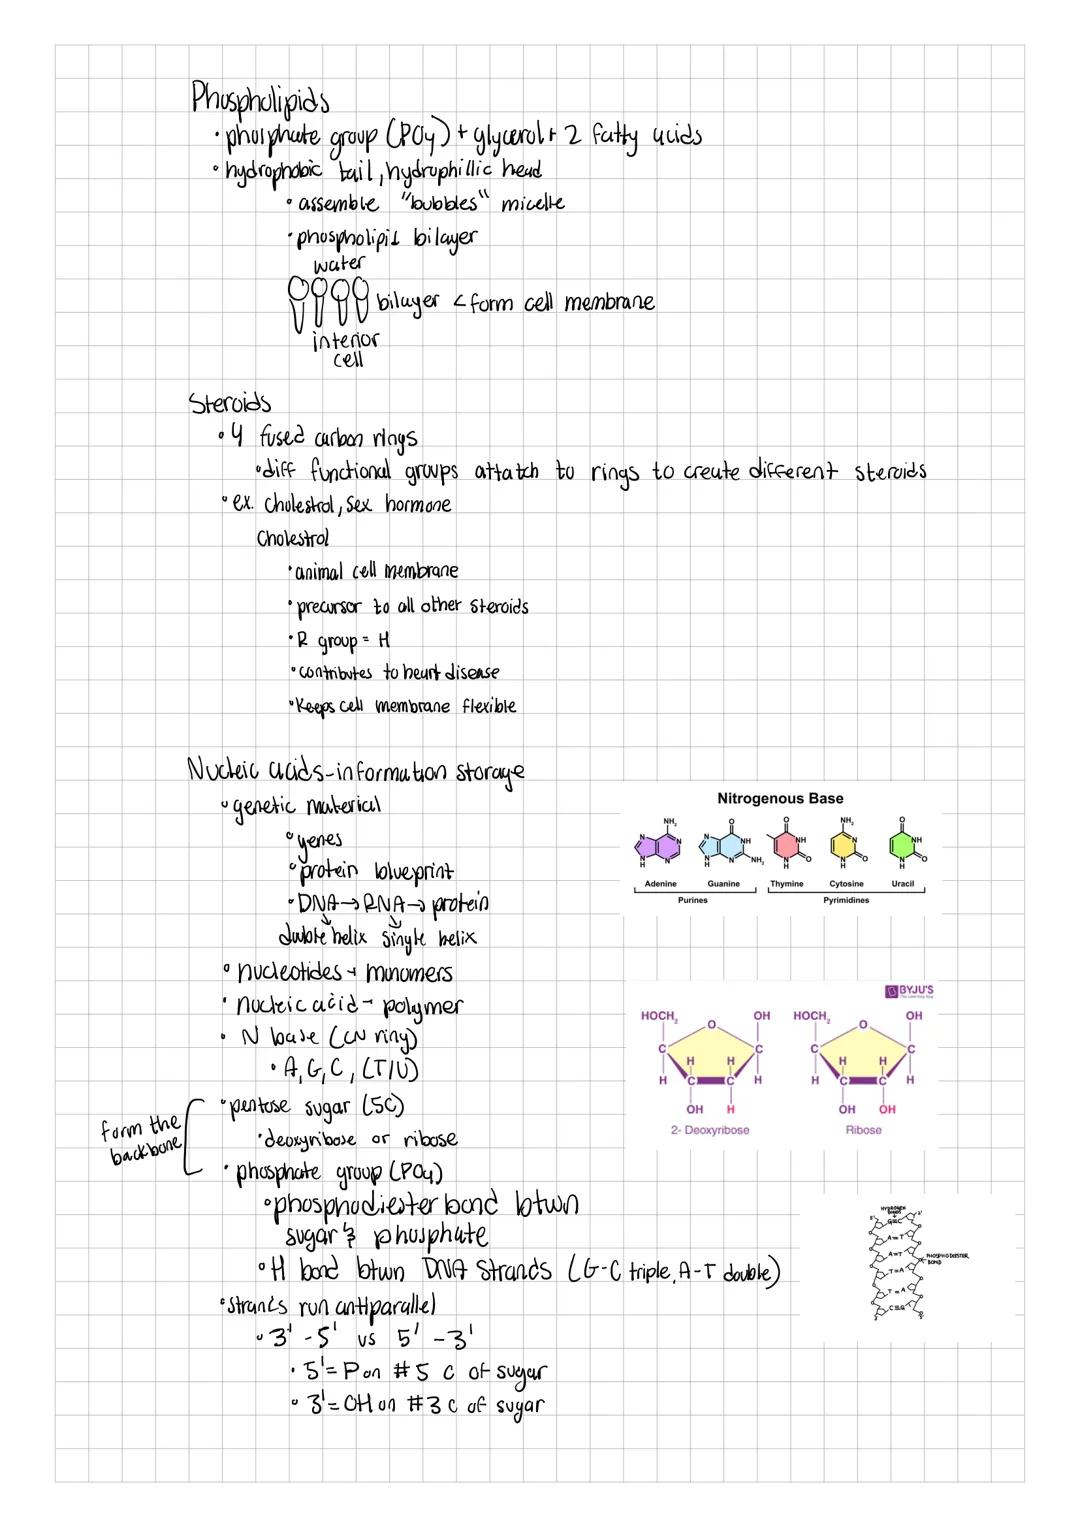 Phospholipids
• phosphate group (PO4) + glycerol + 2 fatty acids
• hydrophobic tail, hydrophillic head
• assemble "bubbles" micelle
• phospholipid bilayer
water
bilayer < form cell membrane
interior
cell
Steroids
• 4 fused carbon rings
• diff functional groups attatch to rings to create different steroids
• ex. Cholestrol, Sex hormone
Cholestrol
• animal cell membrane
• precursor to all other steroids
• R group = H
• contributes to heart disease
• Keeps cell membrane flexible
Nucleic acids - information storage
• genetic material
• genes
• protein blueprint
• DNA → RNA → protein
double helix single helix
• nucleotides → monomers
• nucleic acid - polymer
• N base (CN ring)
• A, G, C, (T/U)
• pentose sugar (5C)
• deoxyribose or ribose
form the
backbone
• phosphate group (PO4)
• phosphodiester bond btwn
sugar & phosphate
• H bond btwn DNA strands (G-C triple, A-T double)
• strands run antiparallel
• 3' - 5' vs 5' - 3'
• 5' = P on #5 C of sugar
• 3' = OH on #3 C of sugar
Nitrogenous Base
NH2 N N N N H
O N NH N N H NH2
O NH N O H
NH2 N N O H
O NH N O H
Adenine Guanine Thymine Cytosine Uracil
Purines Pyrimidines
BYJU'S
The Learning App
HOCH2 O OH HOCH2 O OH
C C C C
H H H H
H C C H H C C H
OH H OH OH
2- Deoxyribose Ribose
HYDROGEN
BONDS
5' 3'
G≡C
A=T
A=T
PHOSPHODIESTER
BOND
T=A
T=A
C≡G
3' 5'